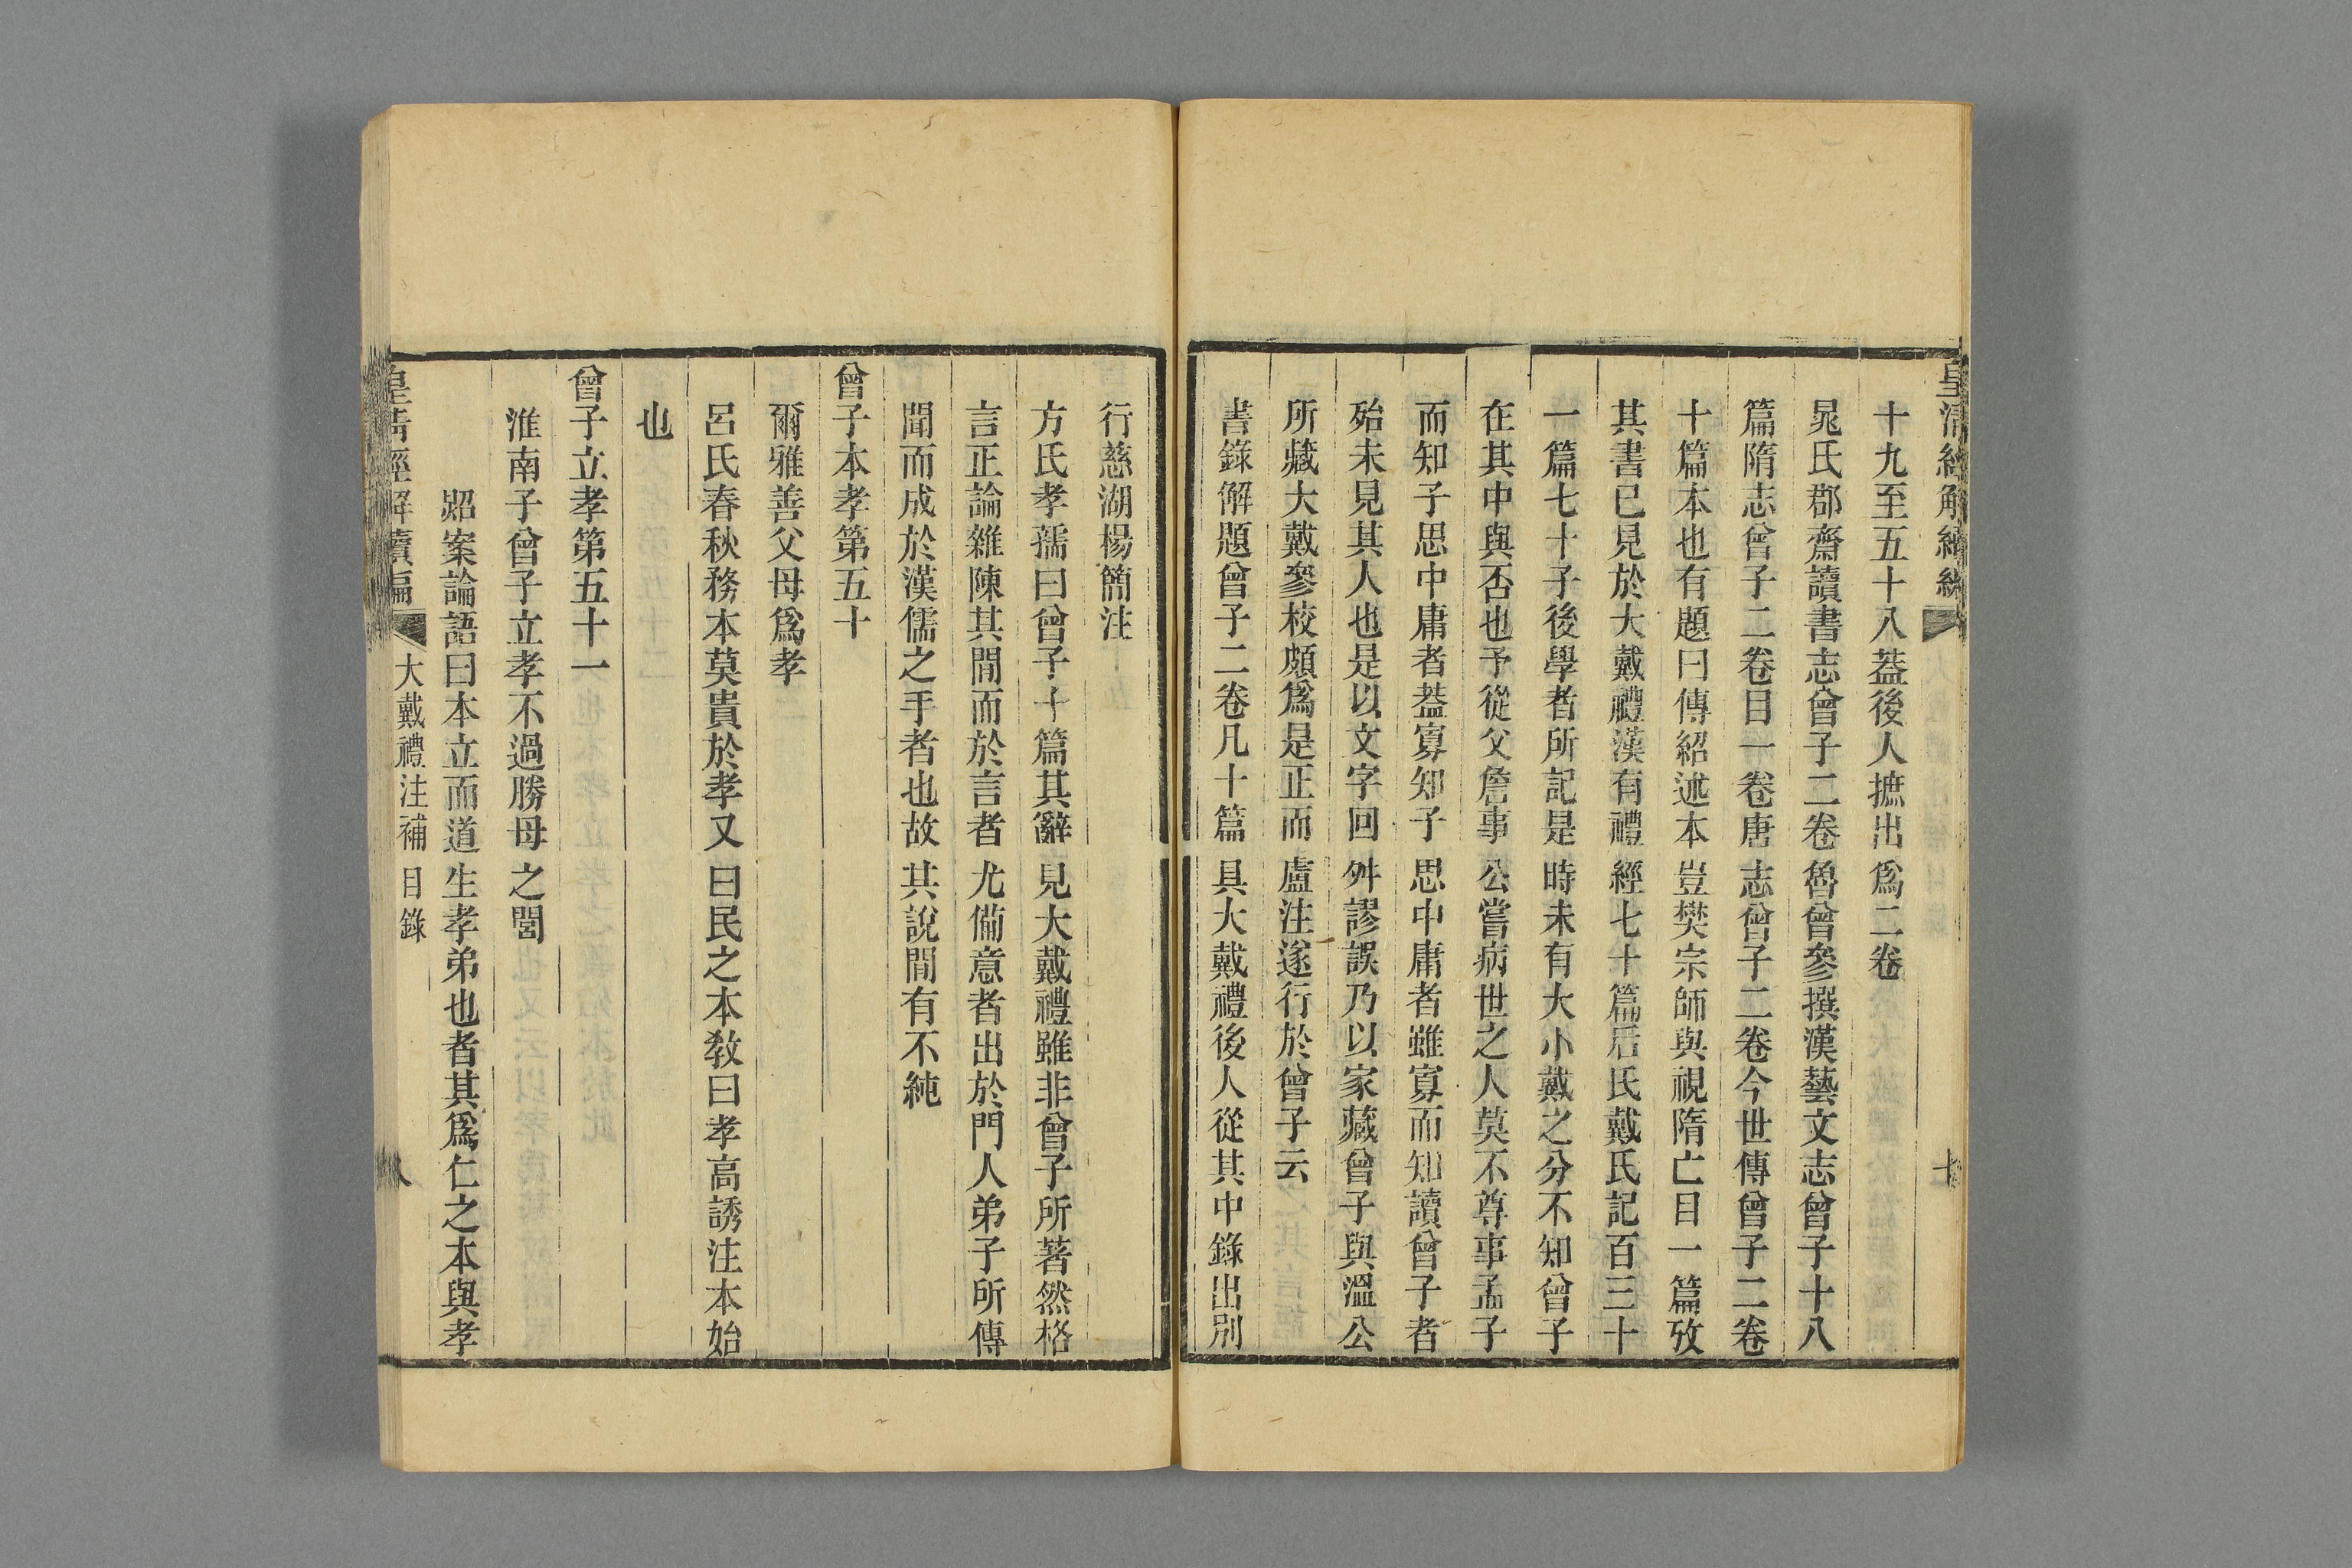 皇清經解續編
七
十九至五十八蓋後人摭出爲二卷
晁氏郡齋讀書志曾子二卷魯曾參撰漢藝文志曾子十八
篇隋志曾子二卷目一卷唐志曾子二卷今世傳曾子二卷
十篇本也有題曰傳紹述本豈樊宗師與視隋亡目一篇攷
其書已見於大戴禮漢有禮經七十篇后氏戴氏記百三十
一篇七十子後學者所記是時未有大小戴之分不知曾子
在其中與否也予從父詹事公嘗病世之人莫不尊事孟子
而知子思中庸者蓋寡知子思中庸者雖寡而知讀曾子者
殆未見其人也是以文字回舛謬誤乃以家藏曾子與溫公
所藏大戴參校頗爲是正而盧注遂行於曾子云
書錄解題曾子二卷凡十篇具大戴禮後人從其中錄出別
行慈湖楊簡注
方氏孝孺曰曾子十篇其辭見大戴禮雖非曾子所著然格
言正論雜陳其閒而於言者尤備意者出於門人弟子所傳
聞而成於漢儒之手者也故其說閒有不純
曾子本孝第五十
爾雅善父母爲孝
呂氏春秋務本莫貴於孝又曰民之本敎曰孝高誘注本始
也
曾子立孝第五十一
淮南子曾子立孝不過勝母之閭
炤案論語曰本立而道生孝弟也者其爲仁之本與孝
皇清經解續編
大戴禮注補 目錄
八